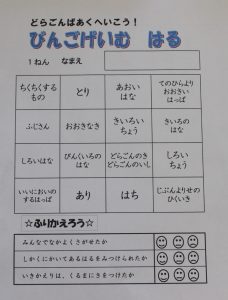 どらごんぱあくへいこう！
びんごげいむ　はる
１ねん　なまえ
ちくちくする
もの
とり
あおい
はな
てのひらより
おおきい
はっぱ
ふじさん
おおきなき
きいろい
ちょう
きいろの
はな
しろいはな
ぴんくいろの
はな
どらごんのき
どらごんのいし
しろい
ちょう
いいにおいの
するはっぱ
あり
はち
じぶんよりせの
ひくいき
☆ふりかえろう☆
みんなでなかよくさがせたか
しかくにかいてあるはるをみつけられたか
いきかえりは、くるまにきをつけたか